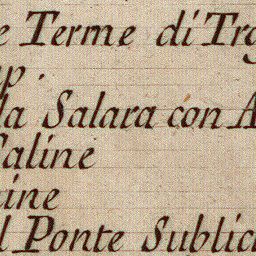 e Terme di Tra
mp.
la Salara con A
Saline
ine
l Ponte Sublic